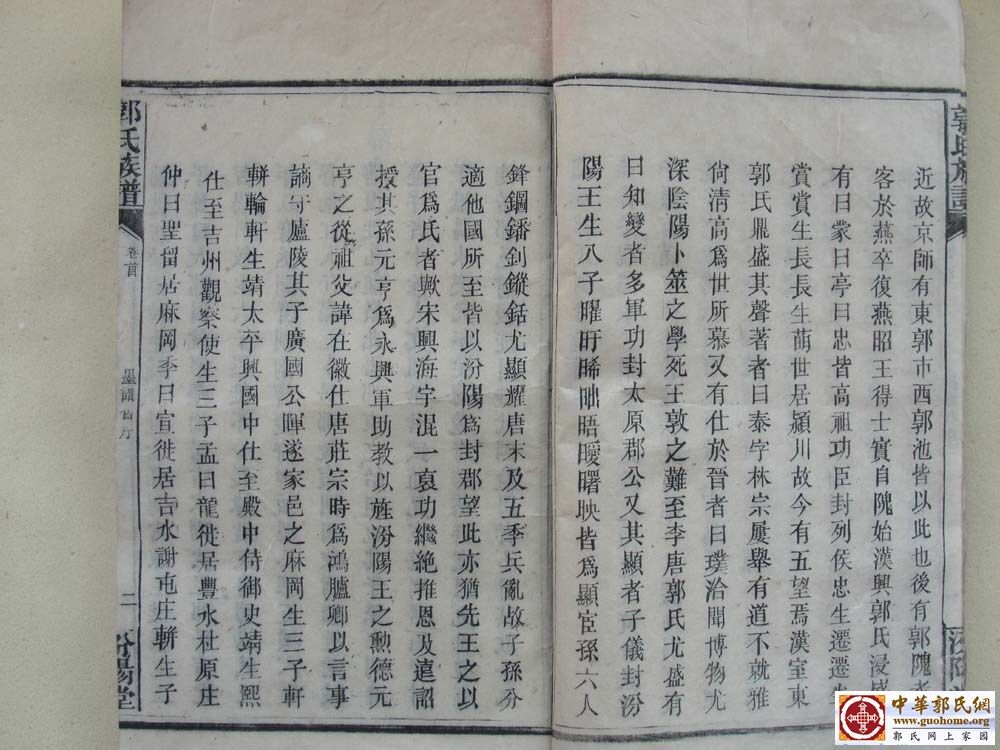 郭氏族譜
近故京師有東郭市西郭池皆以此也後有郭隗者
客於燕卒復燕昭王得士實自隗始漢興郭氏浸
有曰蒙曰亭曰忠皆高祖功臣封列侯忠生遷遷
賞賞生長長生萌世居潁川故今有五望焉漢室東
郭氏鼎盛其聲著者曰泰字林宗屢舉有道不就雅
尙清高爲世所慕又有仕於晉者曰璞洽聞博物尤
深陰陽卜筮之學死王敦之難至李唐郭氏尤盛有
曰知變者多軍功封太原郡公又其顯者子儀封汾
陽王生八子曜旰晞昢晤曖曙映皆爲顯宦孫六人
鋒鋼鐇釗鏦銛尤顯耀唐末及五季兵亂故子孫分
適他國所至皆以汾陽爲封郡望此亦猶先王之以
官爲氏者歟宋興海宇混一裒功繼絶推恩及遠詔
授其孫元亨爲永興軍助教以旌汾陽王之勲德元
亨之從祖父諱在徽仕唐莊宗時爲鴻臚卿以言事
謫守廬陵其子廣國公暉遂家邑之麻岡生三子軒
輧輪軒生靖太平興國中仕至殿中侍御史靖生熙
仕至吉州觀察使生三子孟曰龍徙居豐水杜原庄
仲曰聖留居麻岡季曰宣徙居吉水謝屯庄輧生子
郭氏族譜
卷首
墨譜舊序
二
汾陽堂
中華郭氏網
www.guohome.org
郭氏網上家園